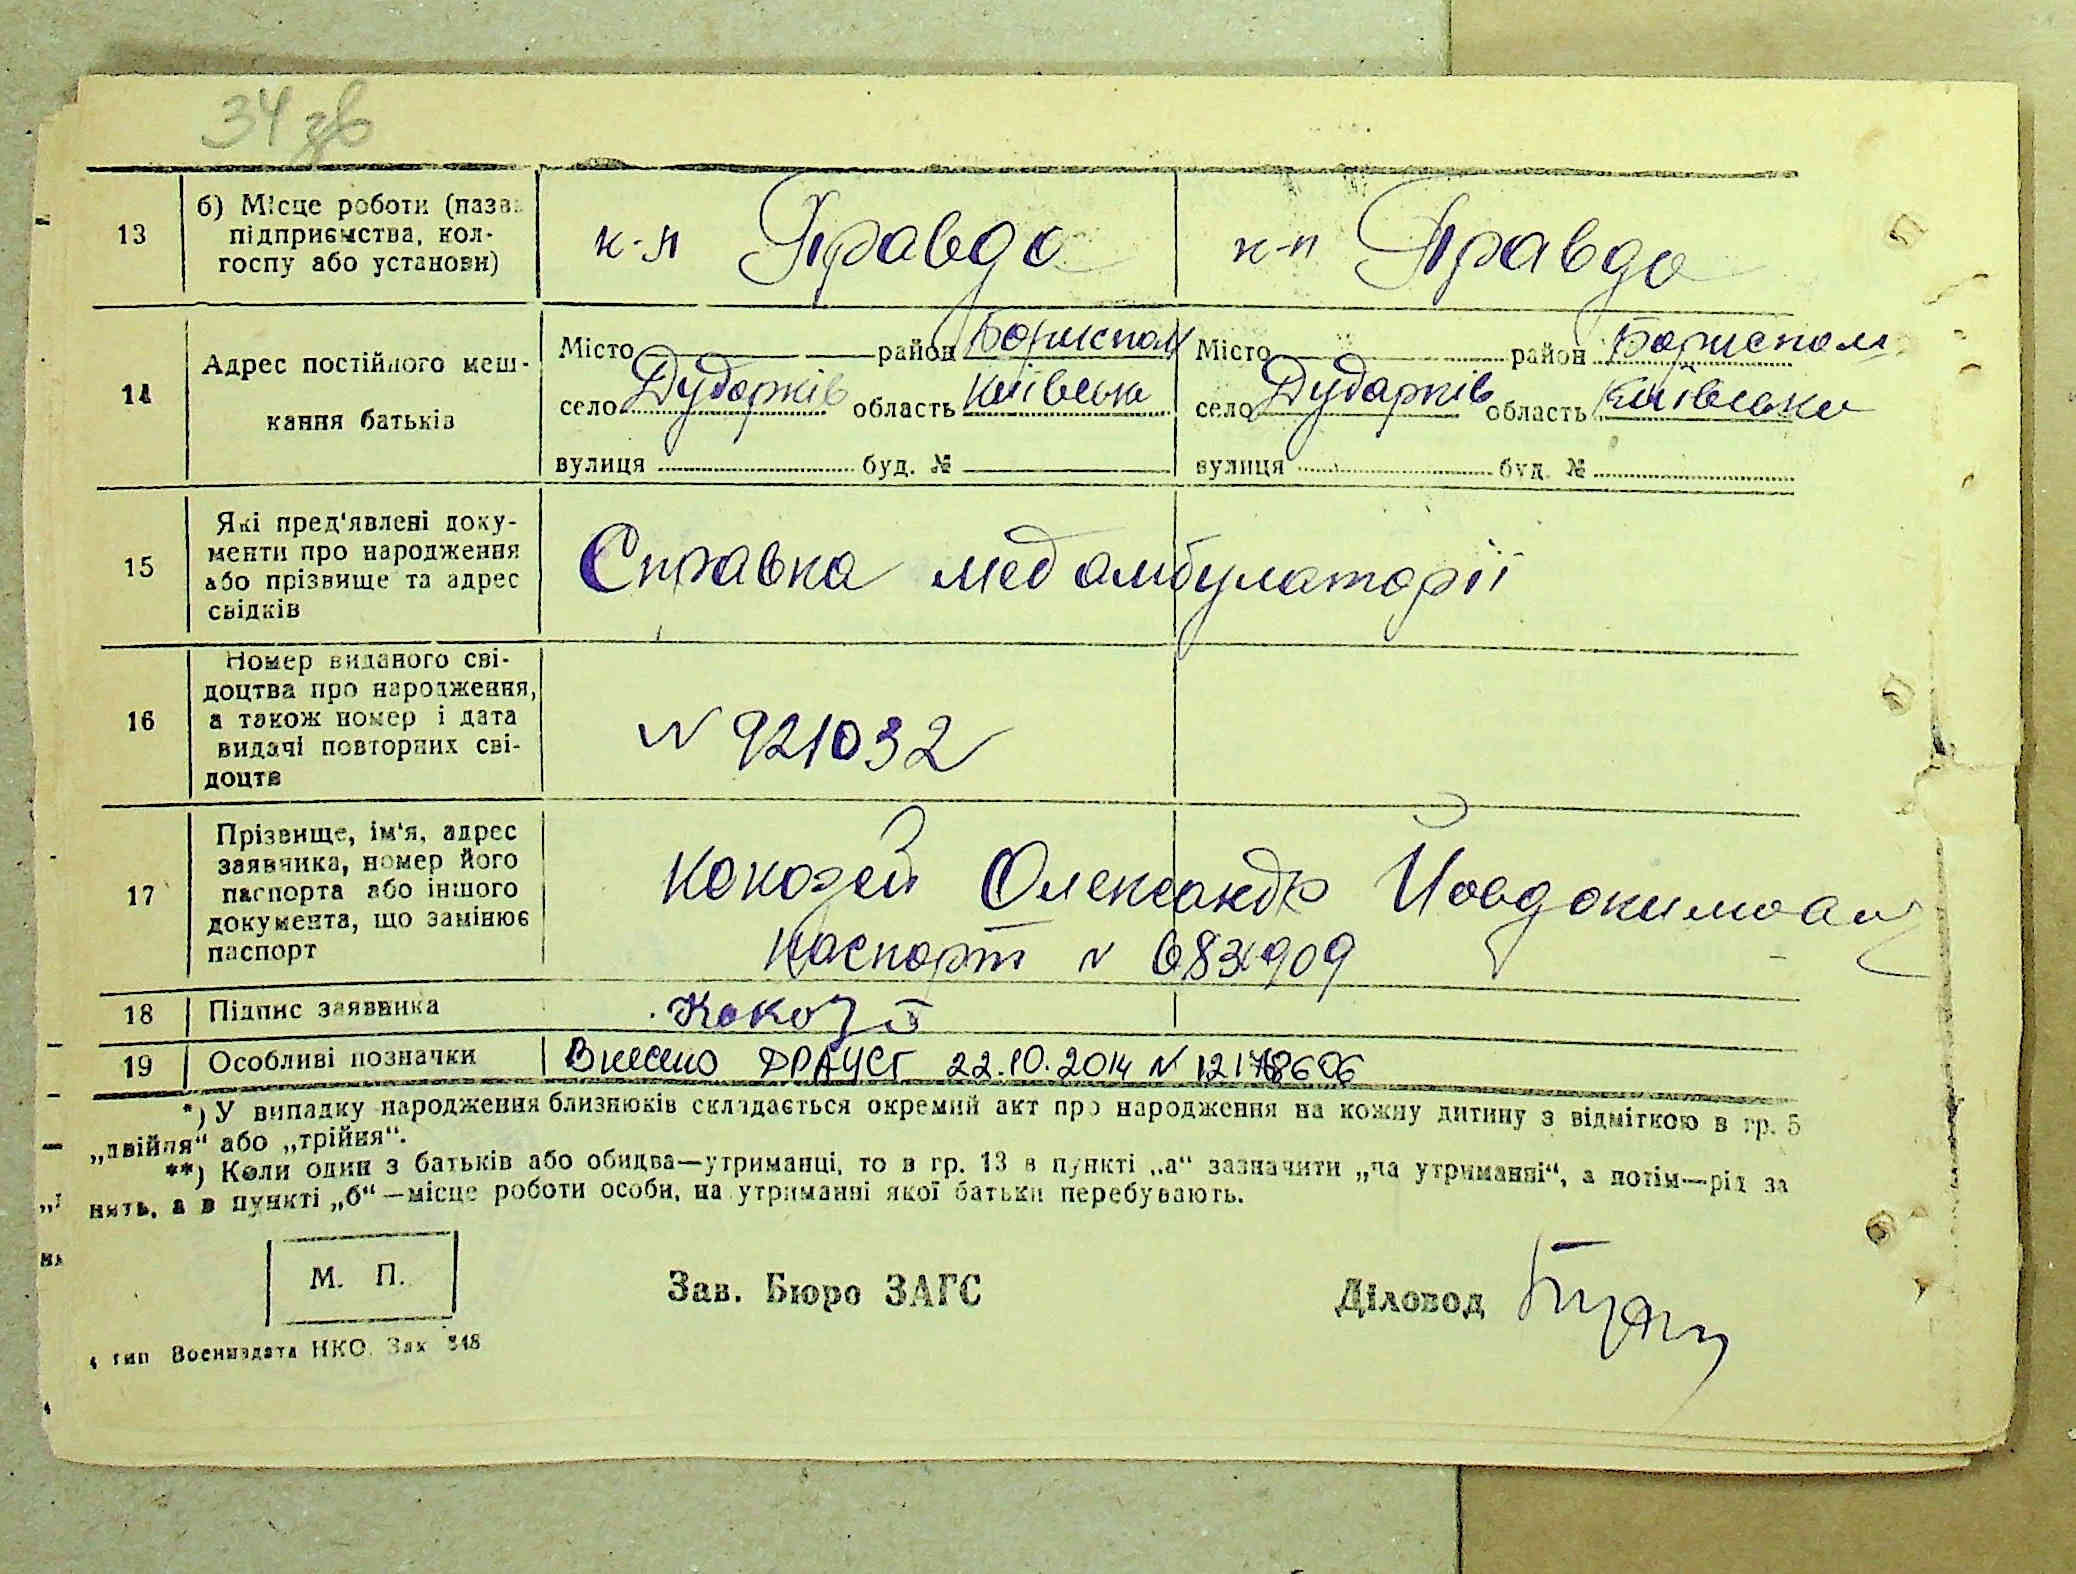 34 зв
13
б) Місце роботи (назва
підприємства, кол-
госпу або установи)
к-п Правда
к-п Правда
14
Адрес постійного меш-
кання батьків
Місто район Бориспол
село Дударків область Київська
вулиця буд. №
Місто район Бориспол
село Дударків область Київська
вулиця буд. №
15
Які пред'явлені доку-
менти про народження
або прізвище та адрес
свідків
Справка мед амбулаторії
16
Номер виданого сві-
доцтва про народження,
а також номер і дата
видачі повторних сві-
доцтв
N 921032
17
Прізвище, ім'я, адрес
заявника, номер його
паспорта або іншого
документа, що замінює
паспорт
Кокозей Олександр
паспорт N
18
Підпис заявника
Кокозей
19
Особливі позначки
Внесено ДРАЦСГ 22.10.2014 N
*) У випадку народження близнюків складається окремий акт про народження на кожну дитину з відміткою в гр. 5
„двійня" або „трійня".
**) Коли один з батьків або обидва—утриманці, то в гр. 13 в пункті „а" зазначити „на утриманні", а потім—рід за
нять, а в пункті „б"—місце роботи особи, на утриманні якої батьки перебувають.
М. П.
Зав. Бюро ЗАГС
Діловод
4 тип Воениздата НКО. Зак 348